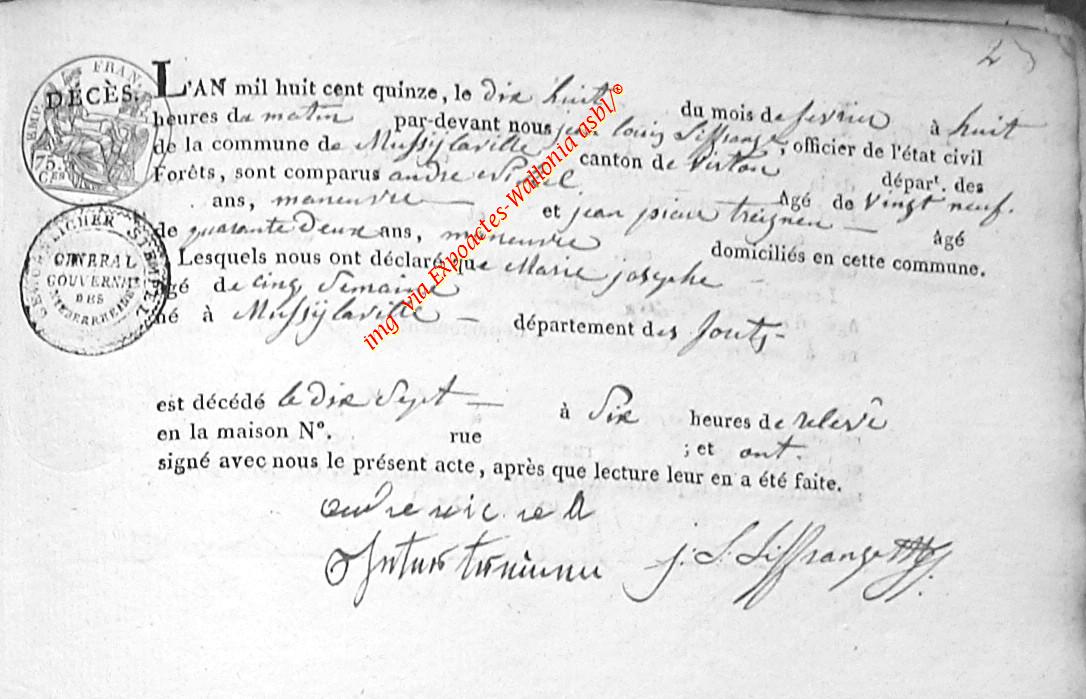 2
DÉCÈS.
L'AN mil huit cent quinze, le dix huit du mois de fevrier à huit
heures du matin par-devant nous jean louis Siffrange, officier de l'état civil
de la commune de Mussijlaville canton de Virton dépar.t des
Forêts, sont comparus andre Agé de Vingt neuf.
ans, maneuvre et jean pieur treignen âgé
de quarante deux ans, maneuvre domiciliés en cette commune.
Lesquels nous ont déclaré que Marie josephe
âgé de cinq Semaine
né à Mussijlaville département des
est décédé le dix Sept à Six heures de relevé
en la maison N°. rue ; et ont
signé avec nous le présent acte, après que lecture leur en a été faite.
andre
j: L: Siffrange
FRAN
75.
CES
GENERAL
GOUVERNEM
DES
STEMPEL
img via Expoactes-Wallonia asbl/®